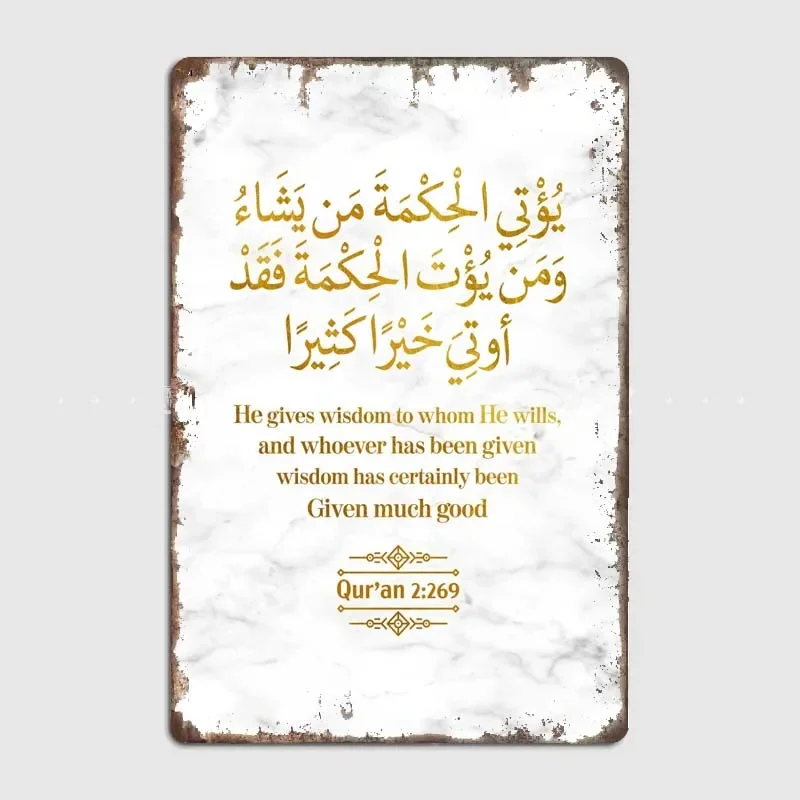 يُؤْتِي الْحِكْمَةَ مَن يَشَاءُ
وَمَن يُؤْتَ الْحِكْمَةَ فَقَدْ
أوتِيَ خَيْرًا كَثِيرًا
He gives wisdom to whom He wills,
and whoever has been given
wisdom has certainly been
Given much good
Qur'an 2:269